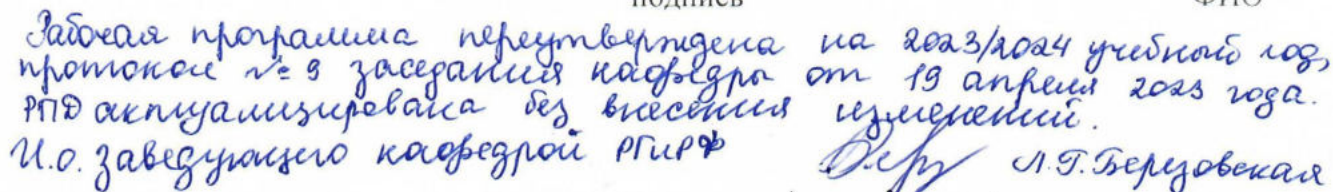 подпись ФИО
Рабочая программа переутверждена на 2023/2024 учебный год,
протокол № 9 заседания кафедры от 19 апреля 2023 года.
РПД актуализирована без внесения изменений.
И.о. заведующего кафедрой РГиРФ Л.Г. Березовская